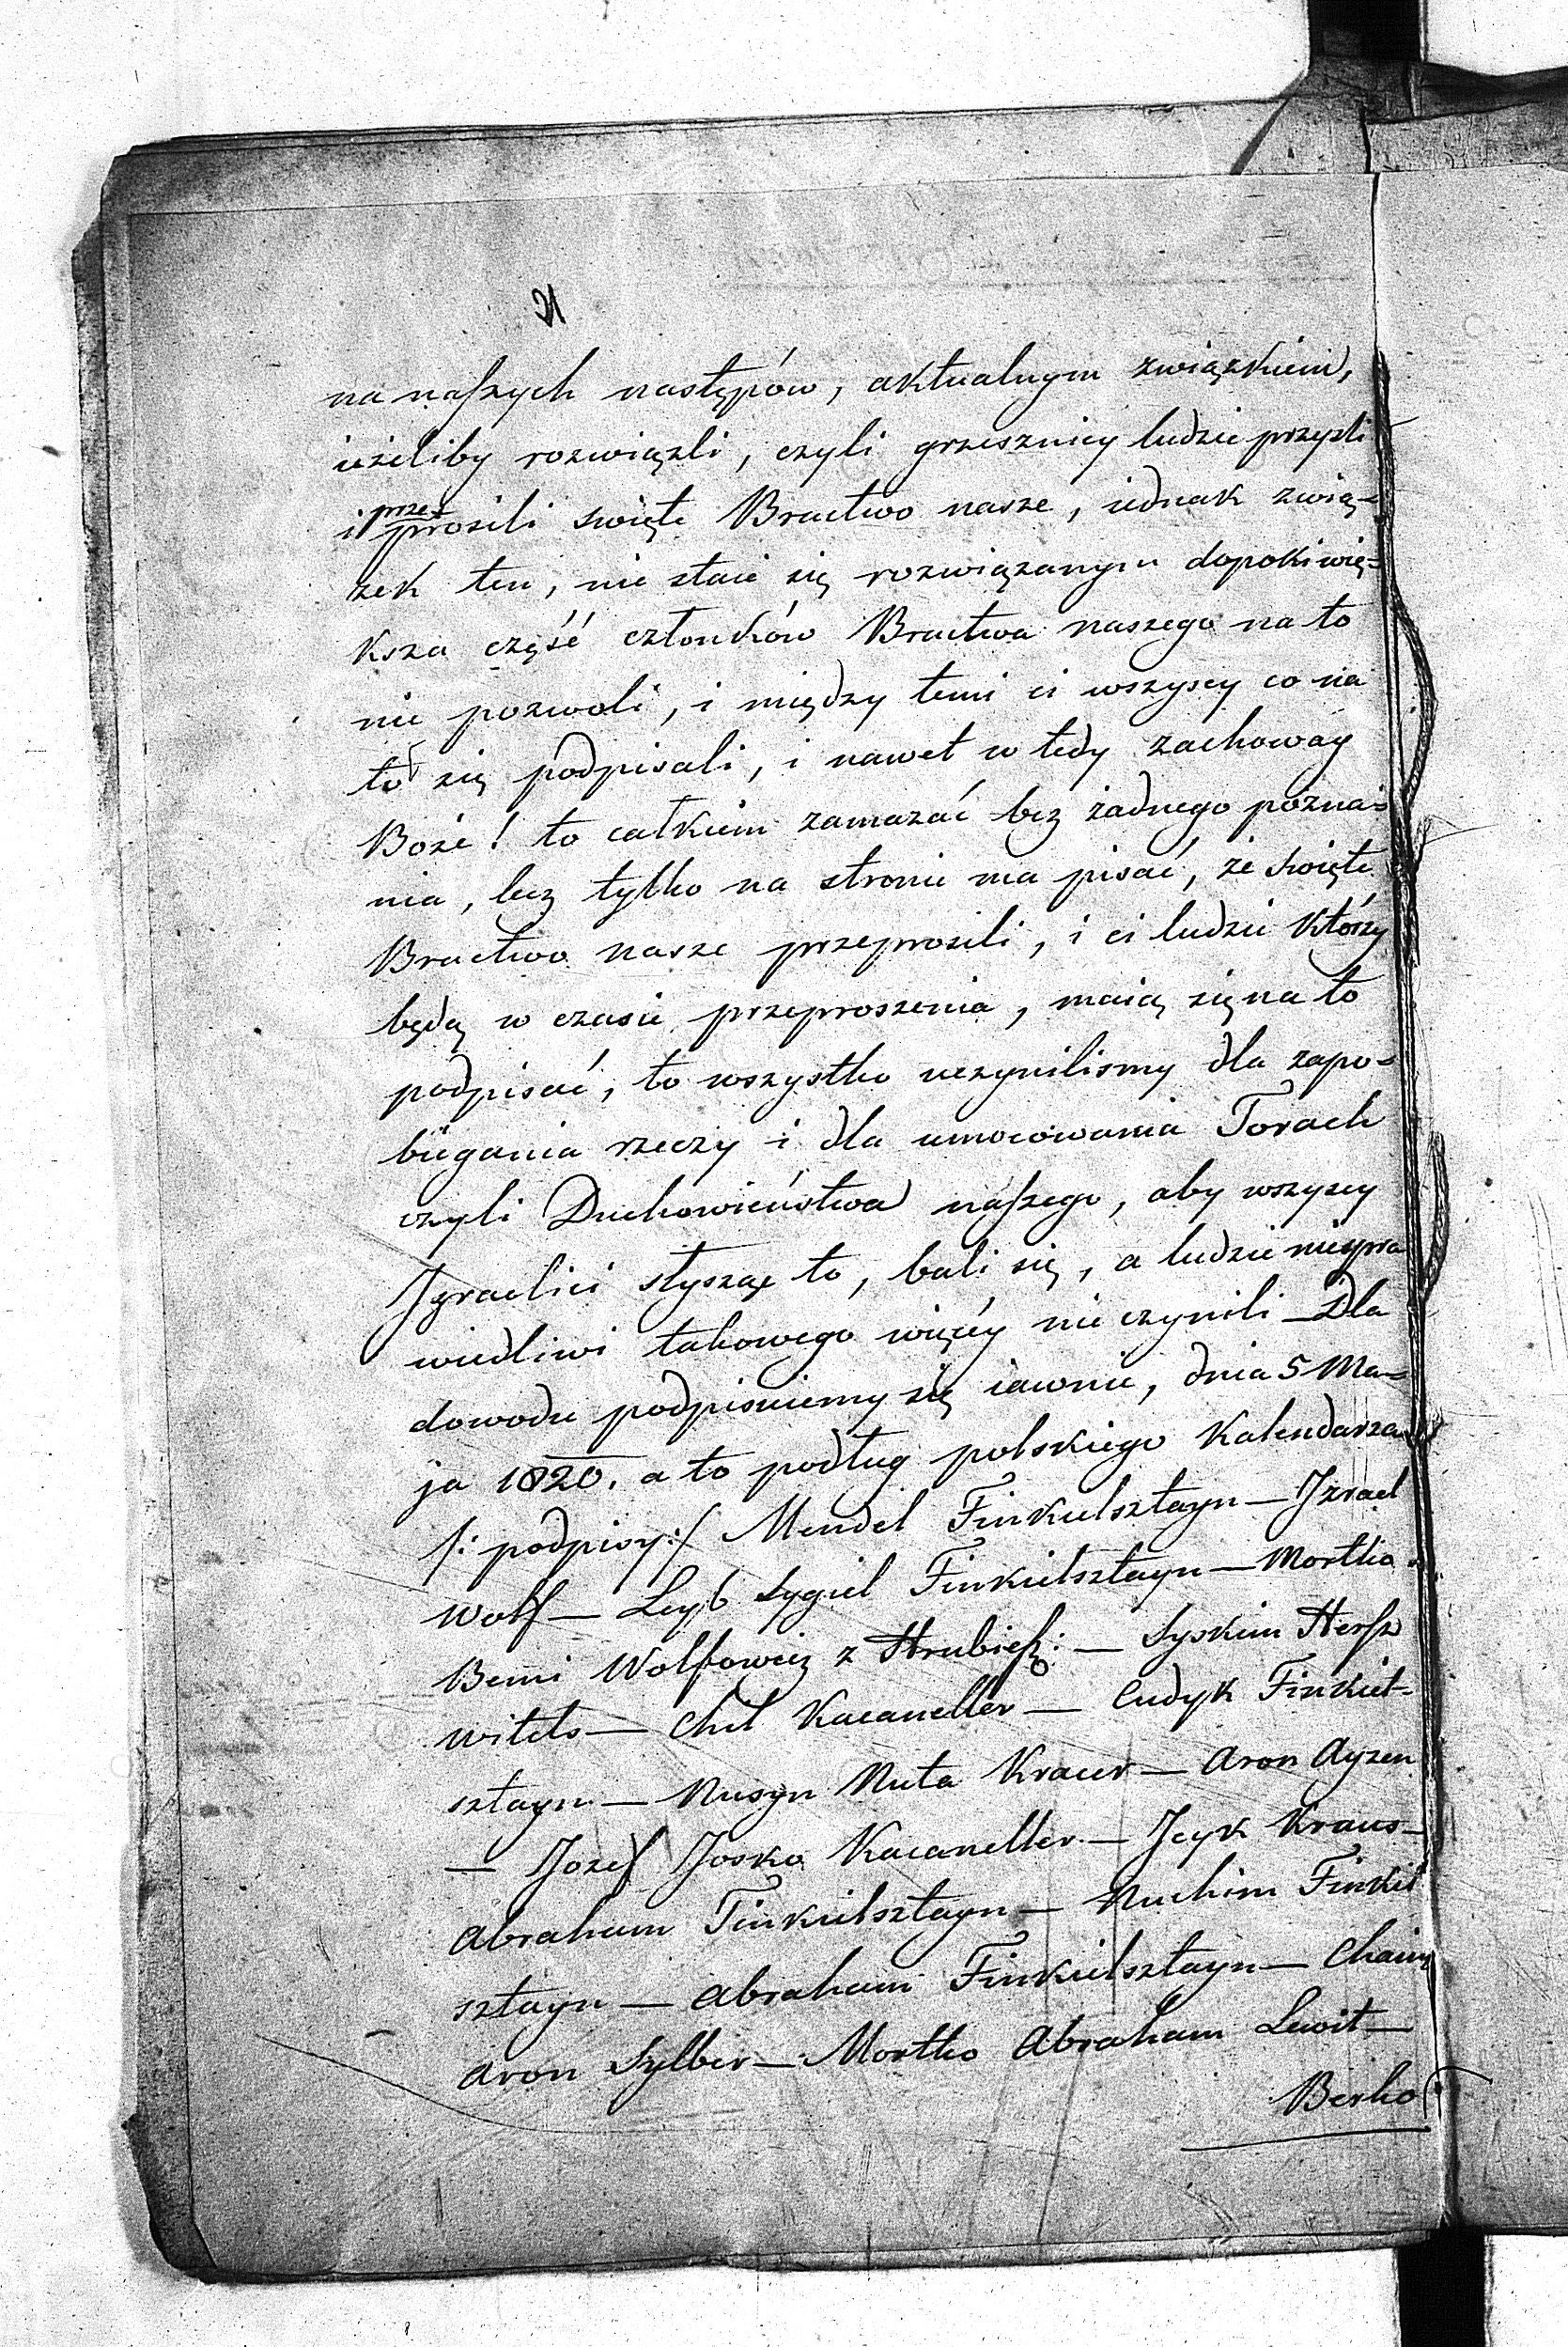 21
na naszych następów, aktualnym związkiem,
ieżeliby rozwiązli, czyli grzesznicy ludzie przyszli
i przeprosili święte Bractwo nasze, iednak zwią-
zek ten, nie staie się rozwiązanym dopoki wię-
ksza część członków Bractwa naszego na to
nie pozwoli, i między temi ci wszyscy co na
to się podpisali, i nawet w tedy zachoway
Boże! to całkiem zamazać bez żadnego pozna-
nia, lecz tylko na stronie ma pisać, że święte
Bractwo nasze przeprosili, i ci ludzie którzy
będą w czasie przeproszenia, maią się na to
podpisać, to wszystko uczynilismy dla zapo-
biegania rzeczy i dla umocowania Torach
czyli Duchowieństwa naszego, aby wszyscy
Izraelici słysząc to, bali się, a ludzie niespra
wiedliwi takowego więcéy nie czynili – Dla
dowodu podpisuiemy się iawnie, dnia 5 Ma-
ja 1820. a to podług polskiego Kalendarza
/: podpisy :/ Mendel Finkielsztayn – Izrael
Wolf – Leyb Sygiel Finkielsztayn – Mortko
Bemi Wolfowicz z Hrubiesz: – Syskim Hersz
witels – Chil Kacaneller – Ludyk Finkiel-
sztayn – Nusyn Nuta Kracer – Aron Ayzen
– Jozef Josko Kacaneller – Jcyk Kraus –
Abraham Finkielsztayn – Nuchim Finkiel
sztayn – Abraham Finkielsztayn – Chaim
Aron Sylber – Mortko Abraham Lewit –
Berko